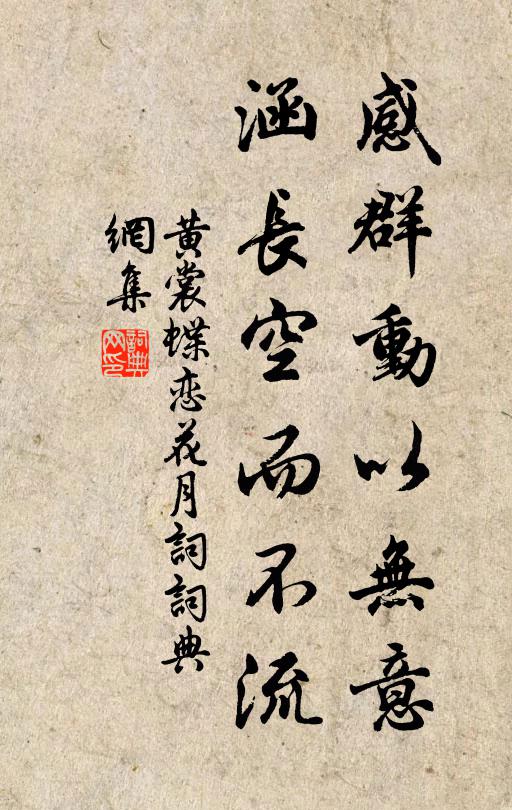 感群動以無意
涵長空而不流
黄裳蝶恋花月詞詞典
網集
詞典
网印